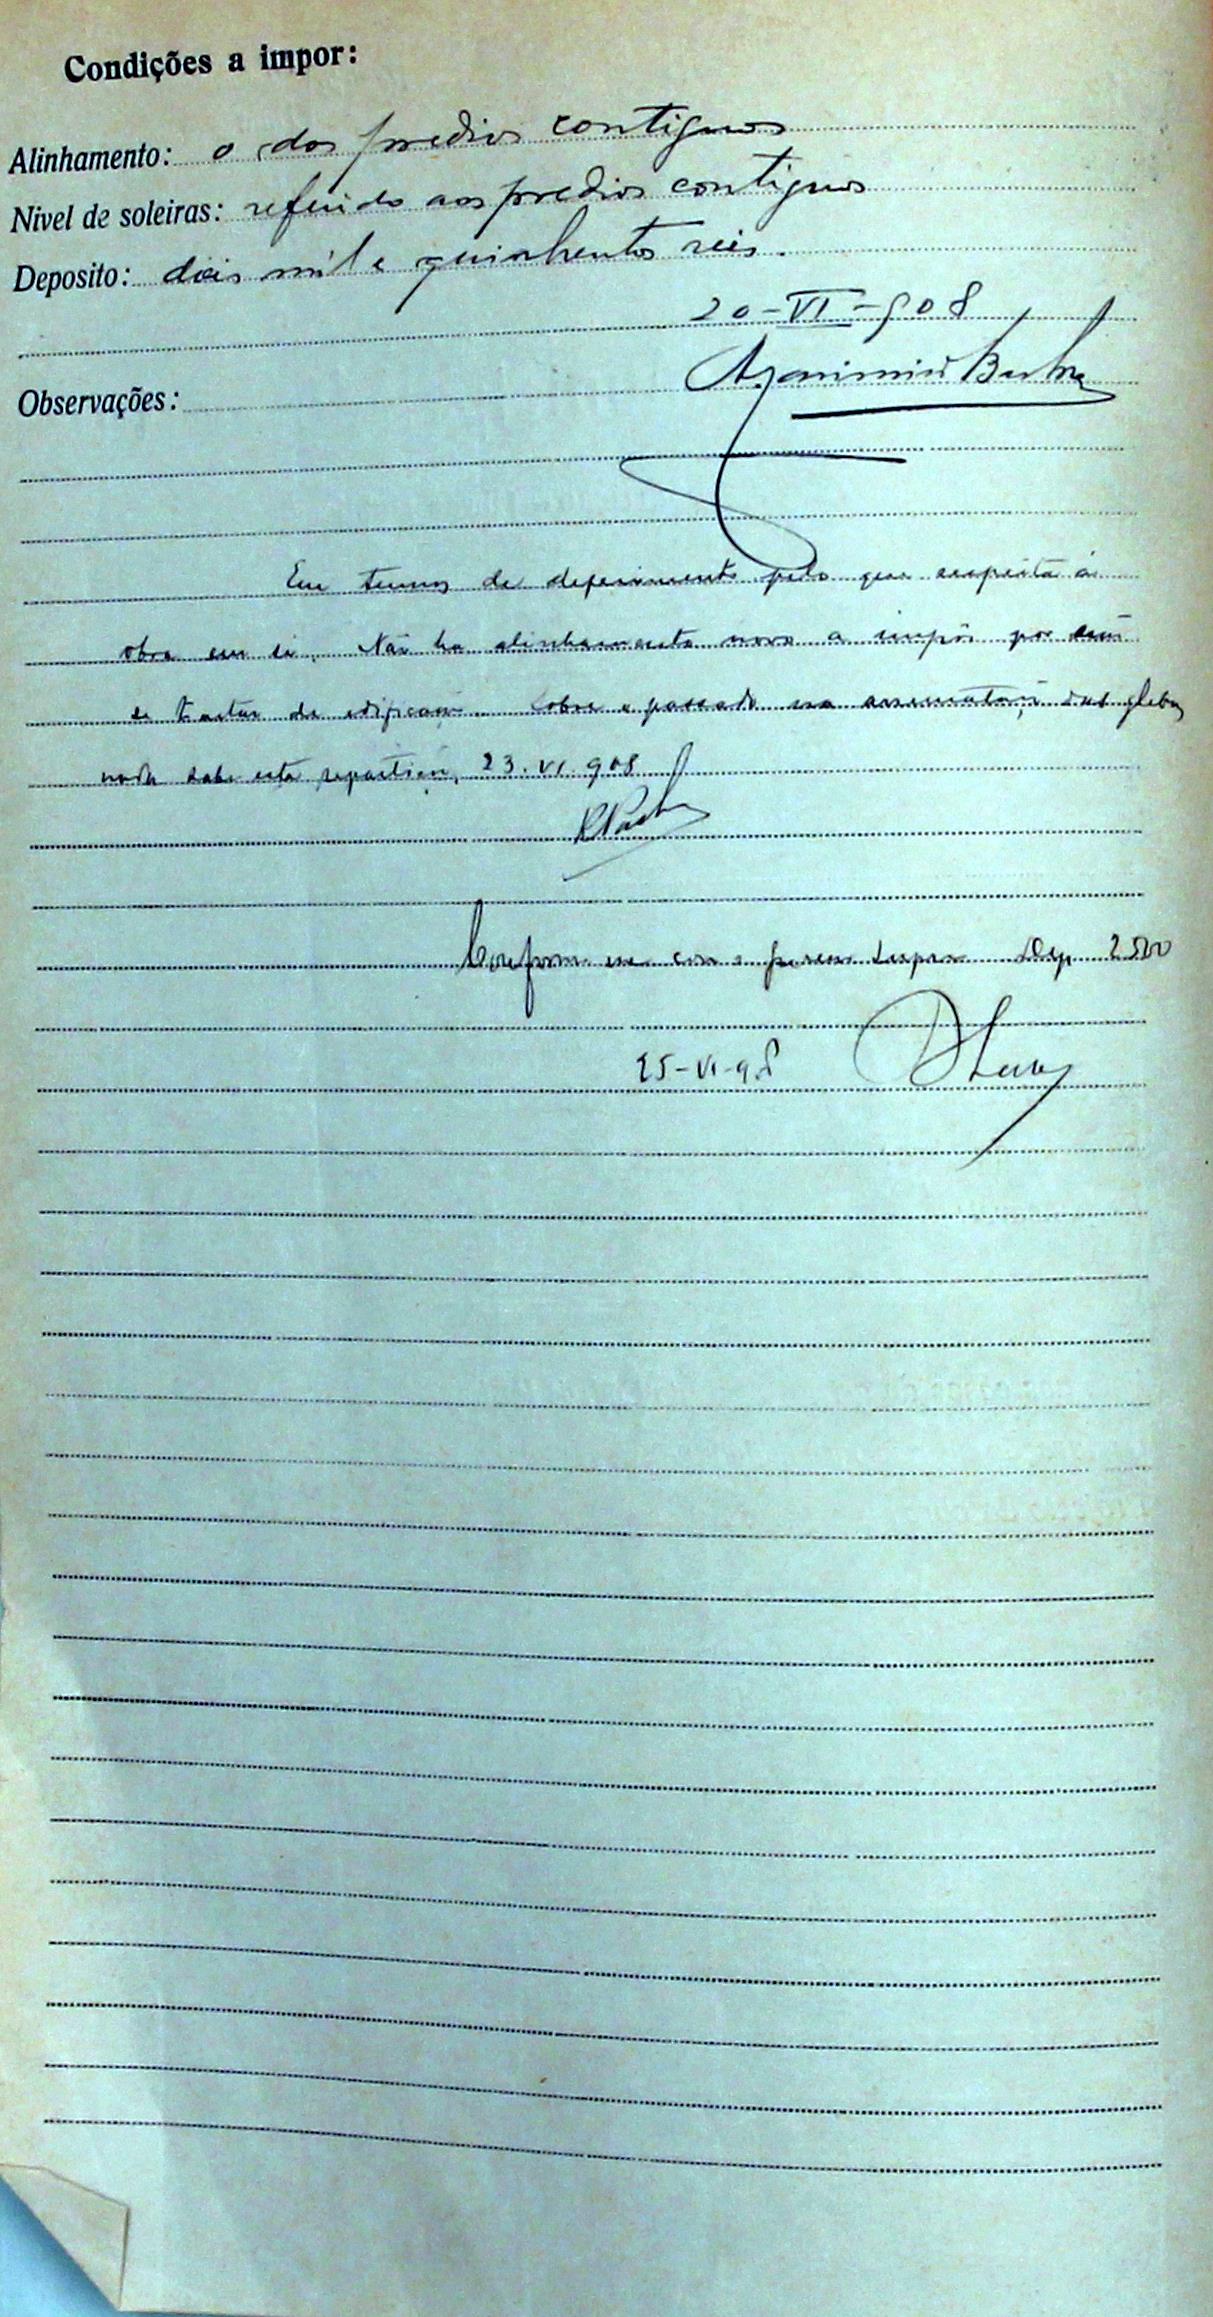 Condições a impor:
Alinhamento: o dos predios contiguos
Nivel de soleiras: referido aos predios contiguos
Deposito: dois mil e quinhentos reis.
20-VI-908
Observações:
Em termos de deferimento pelo que respeita á
obra em si. Não ha alinhamento novo a impôr por
se tratar de edificação. Sobre o passado na arrematação das glebas
nada sabe esta repartição, 23.VI.908
Conformo-me com o parecer supra Dep. 2500
25-VI-908